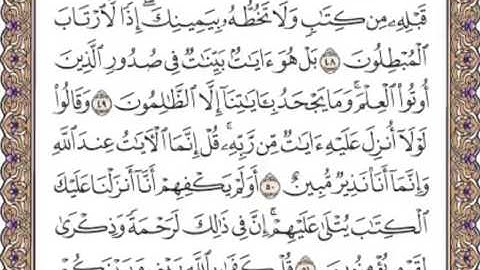 قَبْلِهِۦ مِن كِتَـٰبٍ وَلَا تَخُطُّهُۥ بِيَمِينِكَ ۖ إِذًا لَّٱرْتَابَ
ٱلْمُبْطِلُونَ ﴿٤٨﴾ بَلْ هُوَ ءَايَـٰتٌۢ بَيِّنَـٰتٌ فِى صُدُورِ ٱلَّذِينَ
أُوتُوا۟ ٱلْعِلْمَ ۚ وَمَا يَجْحَدُ بِـَٔايَـٰتِنَآ إِلَّا ٱلظَّـٰلِمُونَ ﴿٤٩﴾ وَقَالُوا۟
لَوْلَآ أُنزِلَ عَلَيْهِ ءَايَـٰتٌ مِّن رَّبِّهِۦ ۖ قُلْ إِنَّمَا ٱلْـَٔايَـٰتُ عِندَ ٱللَّهِ
وَإِنَّمَآ أَنَا۠ نَذِيرٌ مُّبِينٌ ﴿٥٠﴾ أَوَلَمْ يَكْفِهِمْ أَنَّآ أَنزَلْنَا عَلَيْكَ
ٱلْكِتَـٰبَ يُتْلَىٰ عَلَيْهِمْ ۚ إِنَّ فِى ذَٰلِكَ لَرَحْمَةً وَذِكْرَىٰ
لِقَوْمٍ يُؤْمِنُونَ ﴿٥١﴾ قُلْ كَفَىٰ بِٱللَّهِ بَيْنِى وَبَيْنَكُمْ